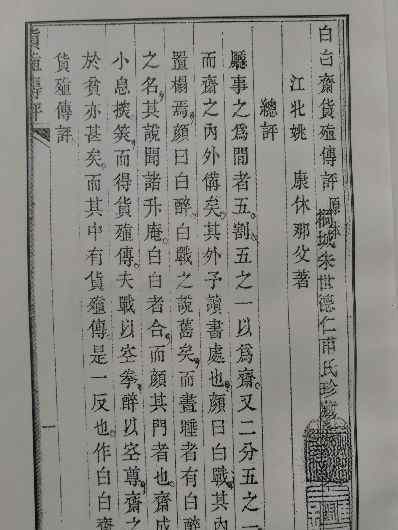 白白齋貨殖傳評 原本
桐城朱世德仁甫氏珍藏
江北姚 康休那父著
總評
廳事之為間者五。割五之一以為齋。又二分五之一
而齋之內外備矣。其外予讀書處也。顏曰白戰。其內
置榻焉。顏曰白醉。白戰之說舊矣。而晝睡者有白醉
之名。其說聞諸升庵。白白者合。而顏其門者也。齋成
小息擬笑。而得貨殖傳。夫戰以空拳。醉以空尊。齋之
於貧亦甚矣。而其中有貨殖傳。是一反也。作白白齋
貨殖傳評
貨殖傳評
一